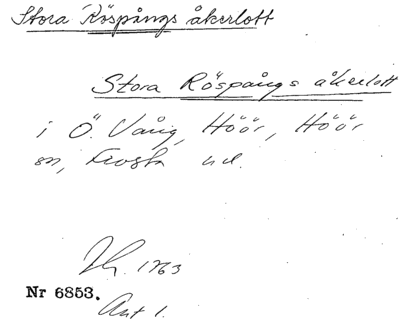 Stora Röspångs åkerlott
Stora Röspångs åkerlott
i Ö. Vång, Höör, Höör
sn, Frosta hd.
1763
Nr 6853.
Akt 1.